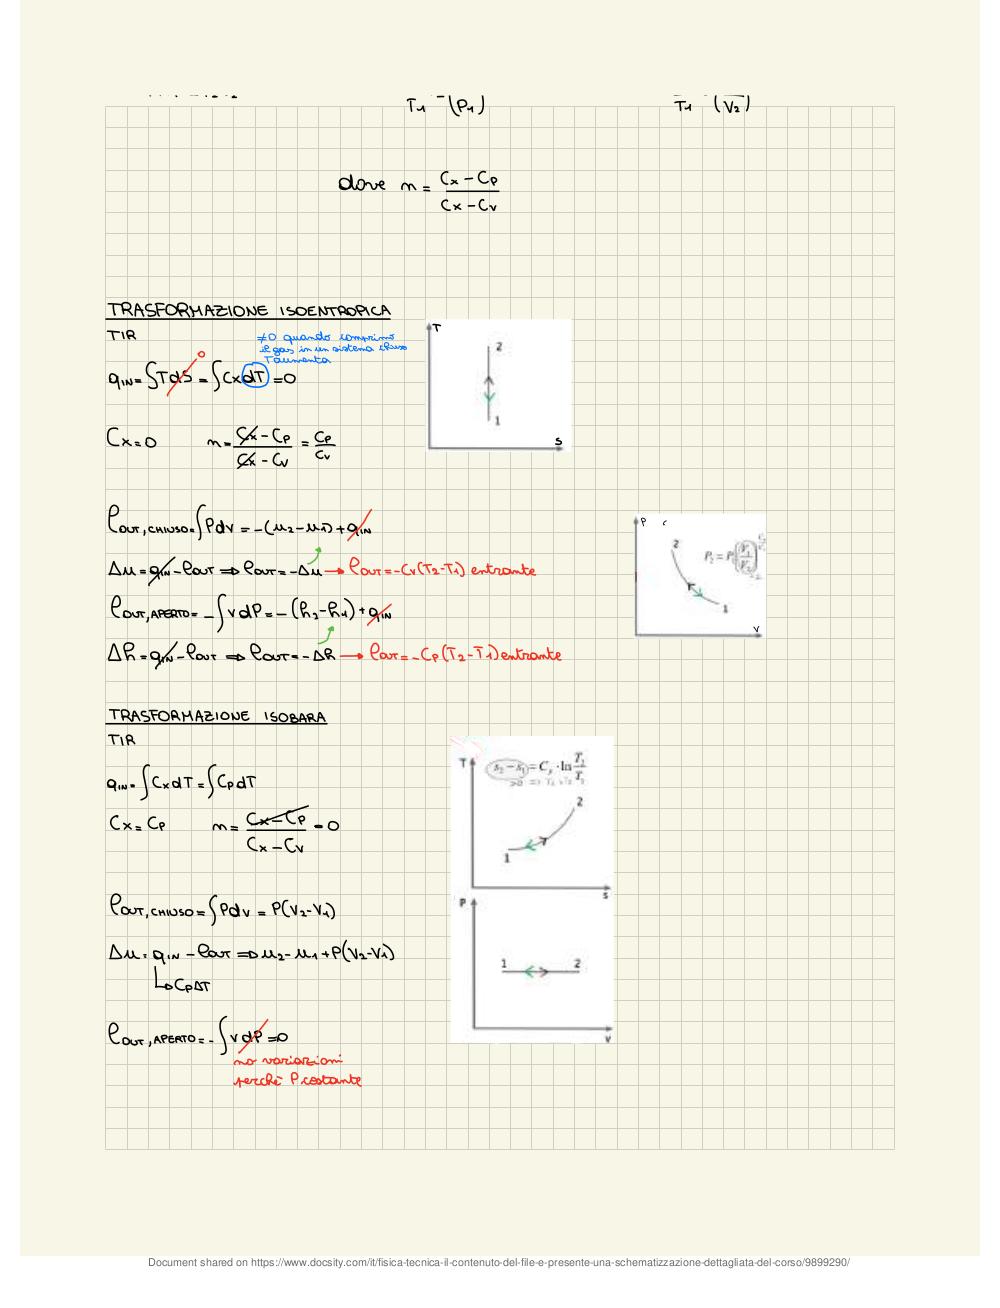 T₁ (P₁)
T₁ (V₂)
dove n = Cx - Cp / Cx - Cv
TRASFORMAZIONE ISOENTROPICA
TIR
≠0 quando comprimo
il gas in un sistema chiuso
T aumenta
0
qIN = ∫TdS = ∫CxdT = 0
T
2
1
S
Cx = 0 n = Cx - Cp / Cx - Cv = Cp / Cv
ℓOUT, CHIUSO = ∫Pdv = -(u₂-u₁) + qIN
Δu = qIN - ℓOUT ⇒ ℓOUT = -Δu → ℓOUT = -Cv(T₂-T₁) entrante
ℓOUT, APERTO = -∫vdP = -(h₂-h₁) + qIN
Δh = qIN - ℓOUT ⇒ ℓOUT = -Δh → ℓOUT = -Cp(T₂-T₁) entrante
P
2
P₂ = P₁(V₁/V₂)
1
V
TRASFORMAZIONE ISOBARA
TIR
qIN = ∫CxdT = ∫CpdT
Cx = Cp n = Cx - Cp / Cx - Cv = 0
T
s₂ - s₁ = Cp · ln T₂/T₁
2
1
s
P
1 2
v
ℓOUT, CHIUSO = ∫Pdv = P(V₂-V₁)
Δu = qIN - ℓOUT ⇒ u₂-u₁ + P(V₂-V₁)
↳ CpΔT
ℓOUT, APERTO = -∫vdP = 0
no variazioni
perchè P costante
Document shared on https://www.docsity.com/it/fisica-tecnica-il-contenuto-del-file-e-presente-una-schematizzazione-dettagliata-del-corso/9899290/